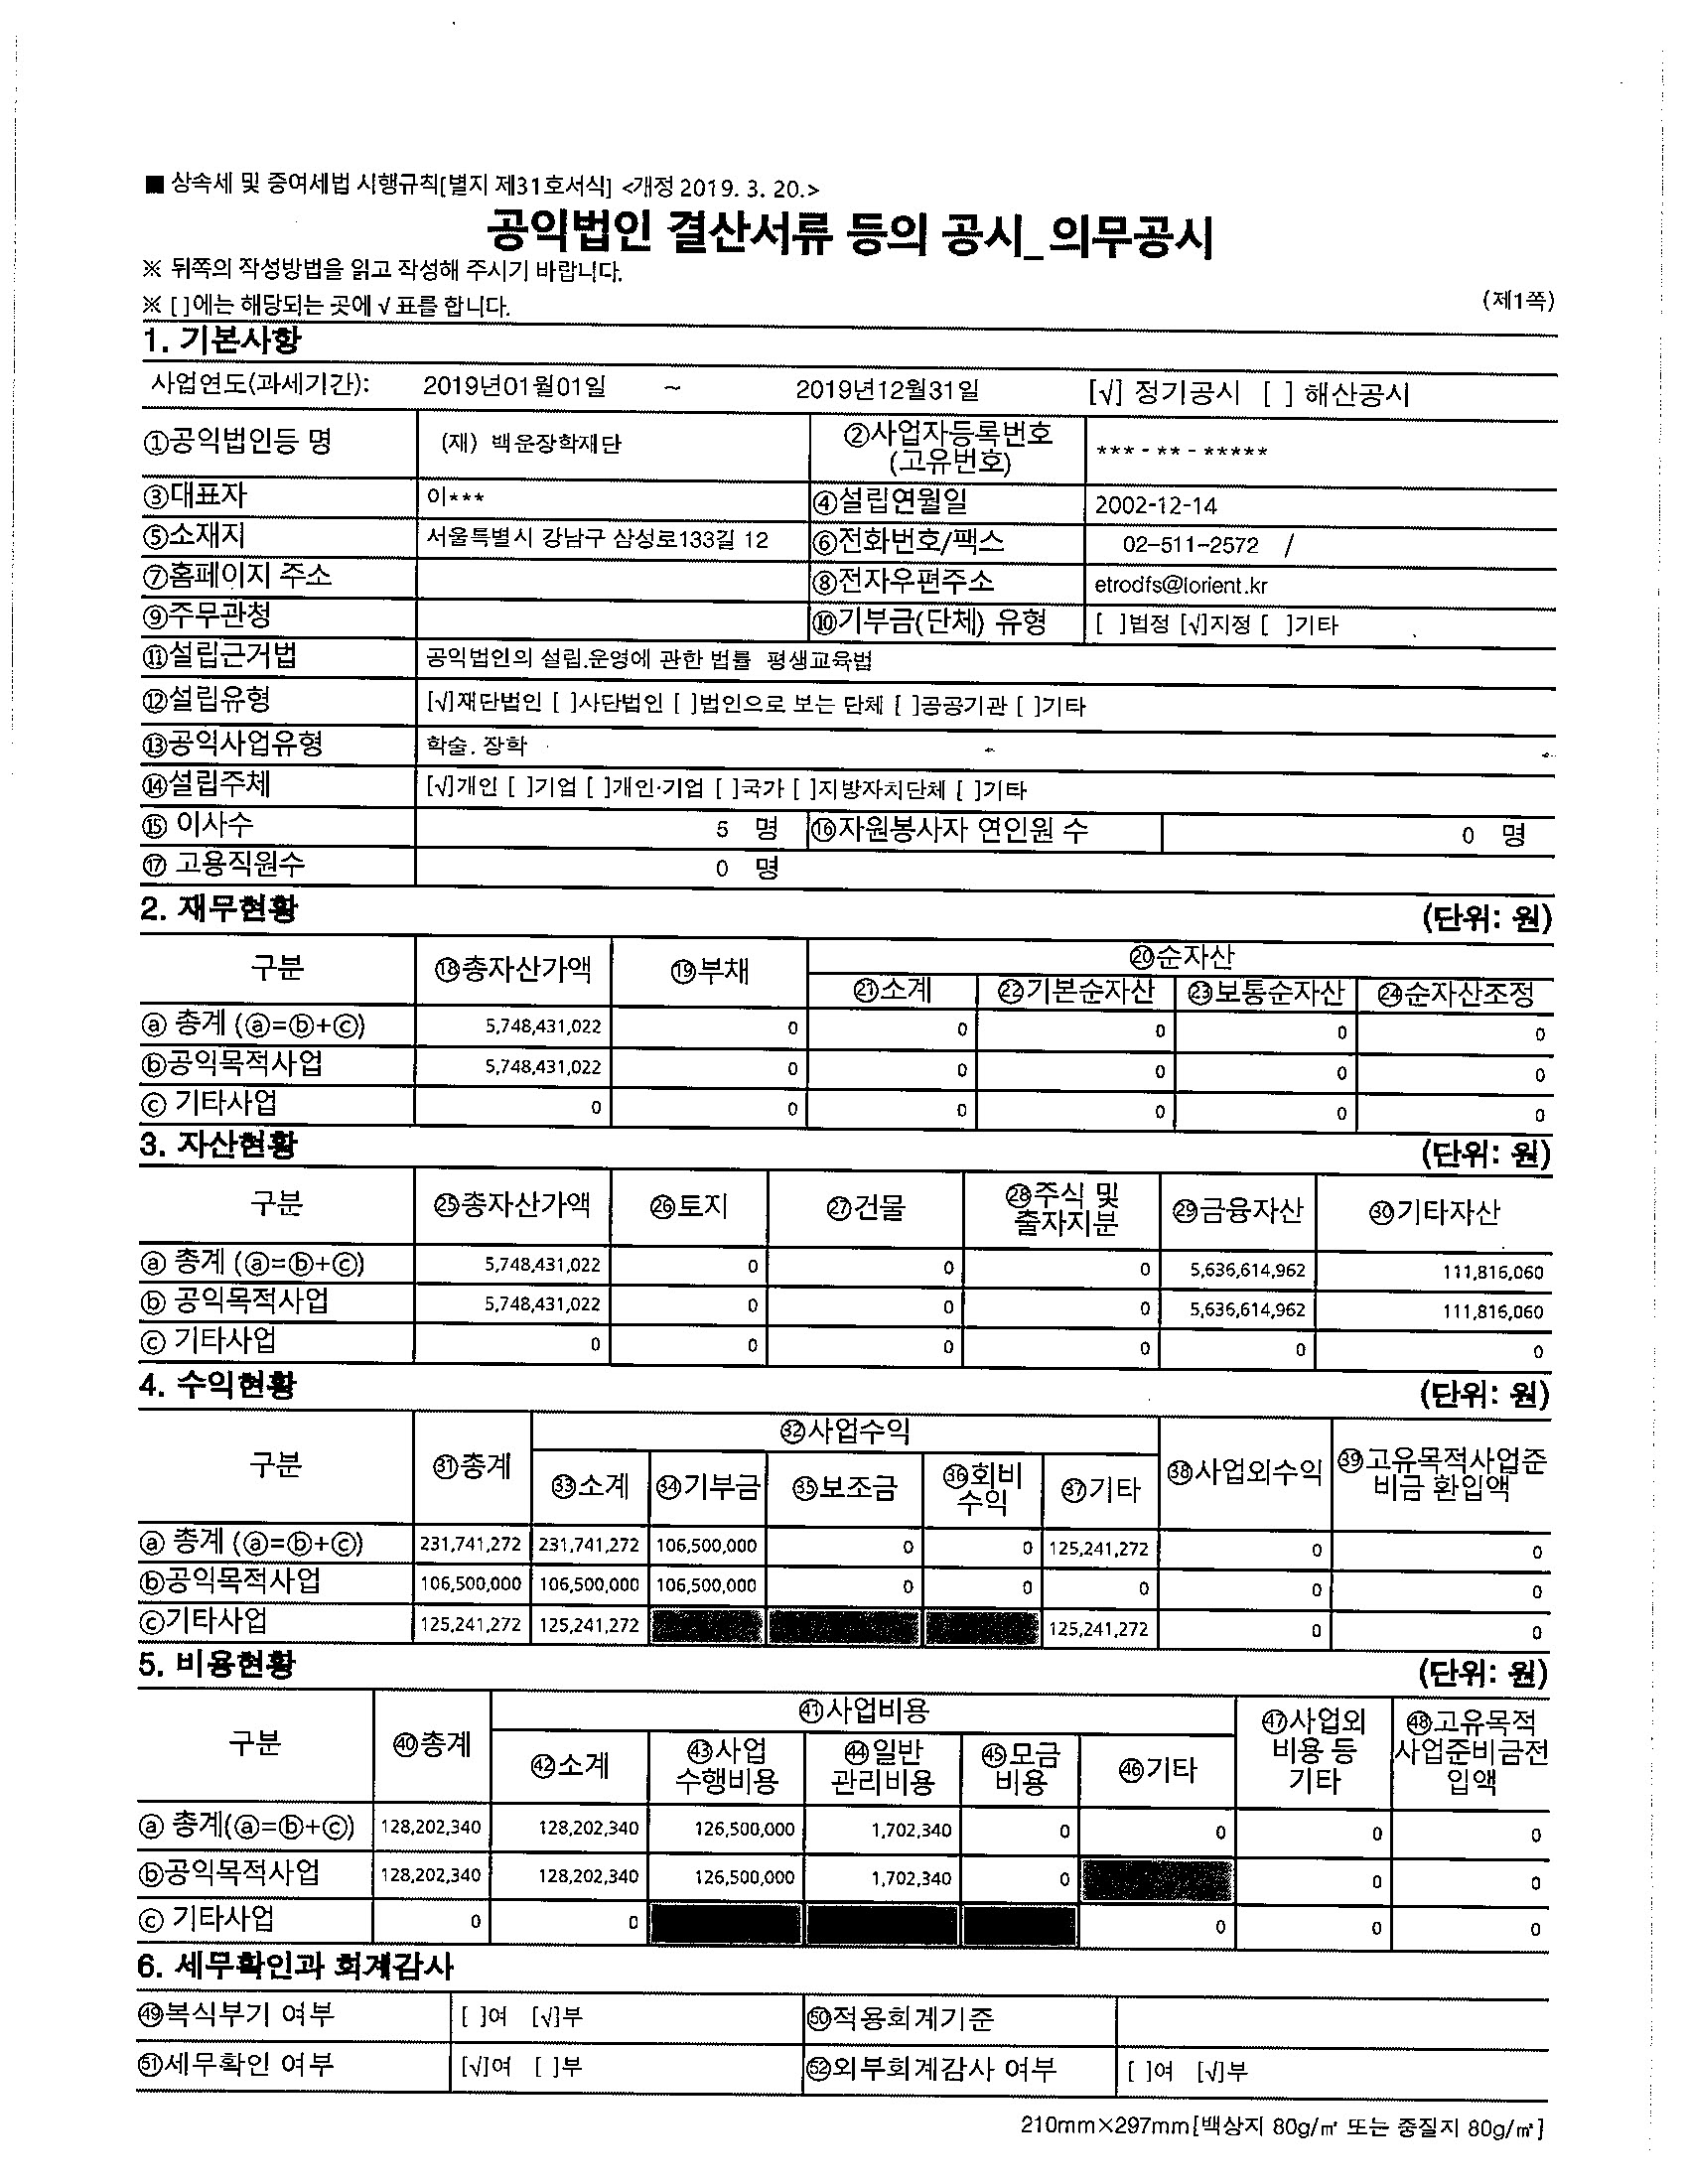 ■ 상속세 및 증여세법 시행규칙[별지 제31호서식] <개정 2019. 3. 20.>
공익법인 결산서류 등의 공시_의무공시
※ 뒤쪽의 작성방법을 읽고 작성해 주시기 바랍니다.
※ [ ]에는 해당되는 곳에 √ 표를 합니다. (제1쪽)
1. 기본사항
사업연도(과세기간): 2019년01월01일 ~ 2019년12월31일 [√] 정기공시 [ ] 해산공시
①공익법인등 명 (재) 백운장학재단 ②사업자등록번호 (고유번호) *** - ** - *****
③대표자 이*** ④설립연월일 2002-12-14
⑤소재지 서울특별시 강남구 삼성로133길 12 ⑥전화번호/팩스 02-511-2572 /
⑦홈페이지 주소 ⑧전자우편주소 etrodfs@lorient.kr
⑨주무관청 ⑩기부금(단체) 유형 [ ]법정 [√]지정 [ ]기타
⑪설립근거법 공익법인의 설립.운영에 관한 법률 평생교육법
⑫설립유형 [√]재단법인 [ ]사단법인 [ ]법인으로 보는 단체 [ ]공공기관 [ ]기타
⑬공익사업유형 학술, 장학
⑭설립주체 [√]개인 [ ]기업 [ ]개인·기업 [ ]국가 [ ]지방자치단체 [ ]기타
⑮ 이사수 5 명 ⑯자원봉사자 연인원 수 0 명
⑰ 고용직원수 0 명
2. 재무현황 (단위: 원)
구분 ⑱총자산가액 ⑲부채 ⑳순자산
㉑소계 ㉒기본순자산 ㉓보통순자산 ㉔순자산조정
ⓐ 총계 (ⓐ=ⓑ+ⓒ) 5,748,431,022 0 0 0 0 0
ⓑ공익목적사업 5,748,431,022 0 0 0 0 0
ⓒ 기타사업 0 0 0 0 0 0
3. 자산현황 (단위: 원)
구분 ㉕총자산가액 ㉖토지 ㉗건물 ㉘주식 및 출자지분 ㉙금융자산 ㉚기타자산
ⓐ 총계 (ⓐ=ⓑ+ⓒ) 5,748,431,022 0 0 0 5,636,614,962 111,816,060
ⓑ 공익목적사업 5,748,431,022 0 0 0 5,636,614,962 111,816,060
ⓒ 기타사업 0 0 0 0 0 0
4. 수익현황 (단위: 원)
구분 ㉛총계 ㉜사업수익 ㊳사업외수익 ㊴고유목적사업준비금 환입액
㉝소계 ㉞기부금 ㉟보조금 ㊱회비 수익 ㊲기타
ⓐ 총계 (ⓐ=ⓑ+ⓒ) 231,741,272 231,741,272 106,500,000 0 0 125,241,272 0 0
ⓑ공익목적사업 106,500,000 106,500,000 106,500,000 0 0 0 0 0
ⓒ기타사업 125,241,272 125,241,272 125,241,272 0 0
5. 비용현황 (단위: 원)
구분 ㊵총계 ㊶사업비용 ㊼사업외 비용 등 기타 ㊽고유목적 사업준비금전 입액
㊷소계 ㊸사업 수행비용 ㊹일반 관리비용 ㊺모금 비용 ㊻기타
ⓐ 총계(ⓐ=ⓑ+ⓒ) 128,202,340 128,202,340 126,500,000 1,702,340 0 0 0 0
ⓑ공익목적사업 128,202,340 128,202,340 126,500,000 1,702,340 0 0 0
ⓒ 기타사업 0 0 0 0 0
6. 세무확인과 회계감사
㊾복식부기 여부 [ ]여 [√]부 ㊿적용회계기준
51세무확인 여부 [√]여 [ ]부 52외부회계감사 여부 [ ]여 [√]부
210mm×297mm[백상지 80g/㎡ 또는 중질지 80g/㎡]